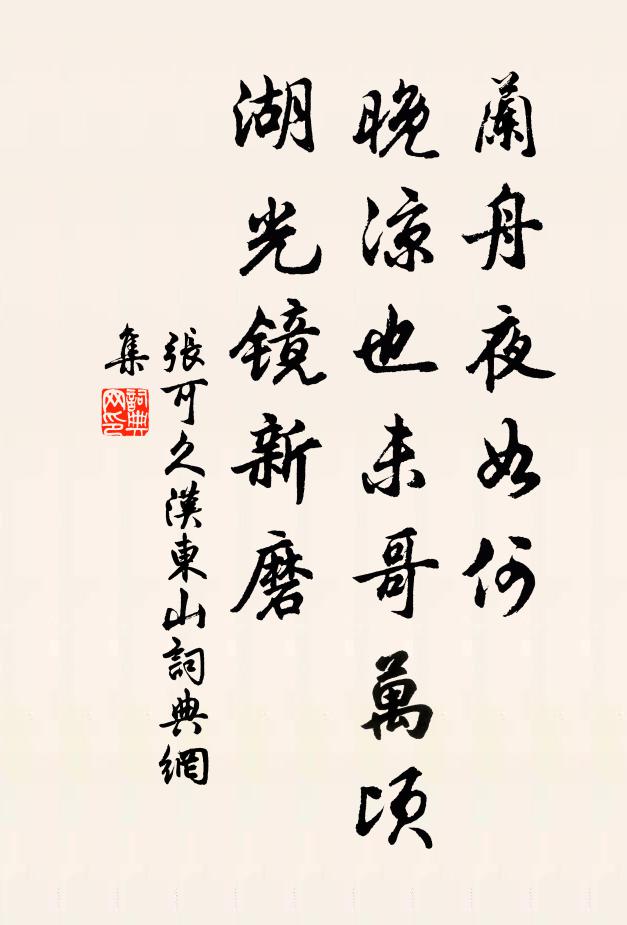 蘭舟夜如何
晚凉也未哥萬頃
湖光鏡新磨
張可久漢東山詞典網
集
詞典網印